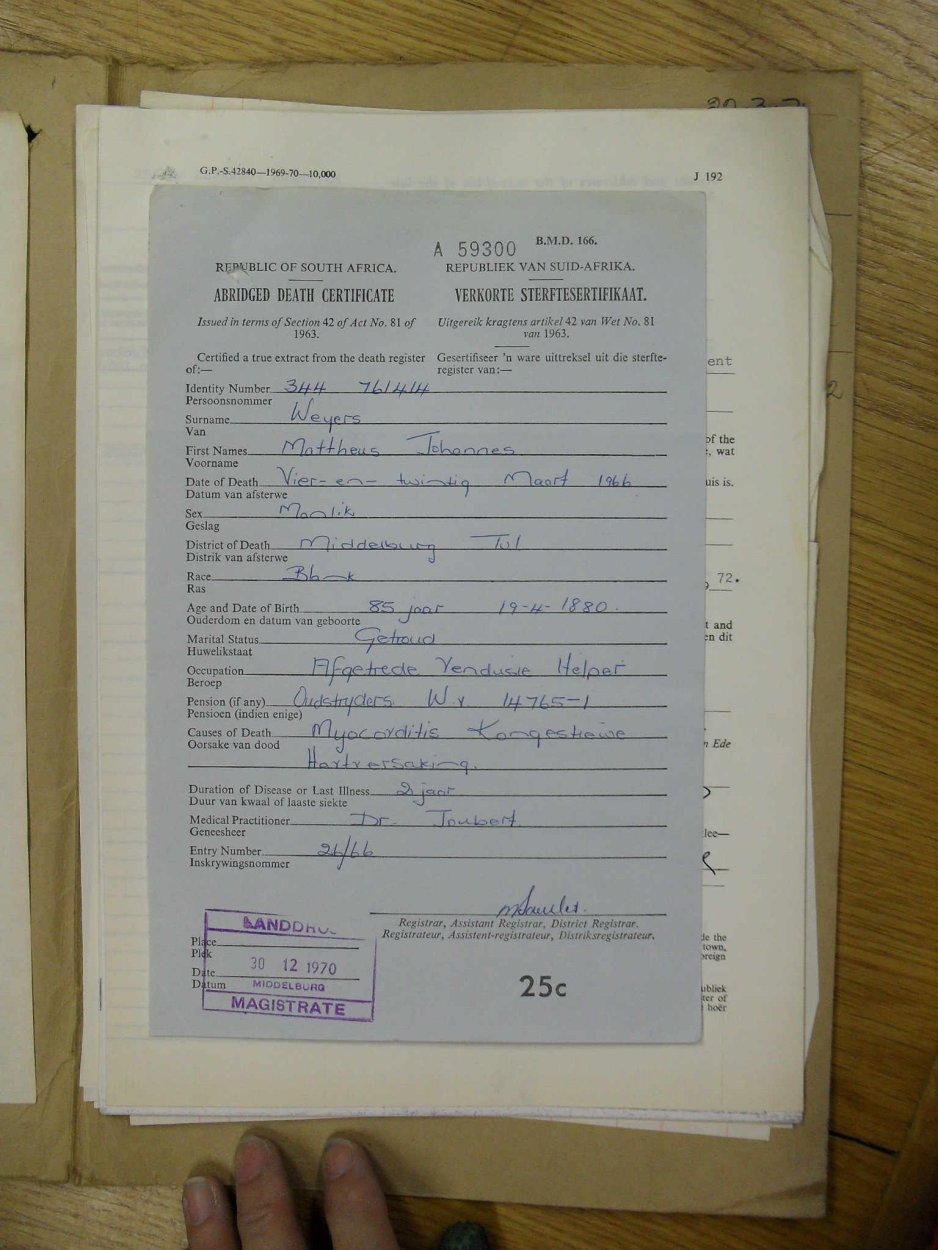 G.P.-S.42840—1969-70—10,000
J 192
A 59300 B.M.D. 166.
REPUBLIC OF SOUTH AFRICA. REPUBLIEK VAN SUID-AFRIKA.
ABRIDGED DEATH CERTIFICATE VERKORTE STERFTESERTIFIKAAT.
Issued in terms of Section 42 of Act No. 81 of Uitgereik kragtens artikel 42 van Wet No. 81
1963. van 1963.
Certified a true extract from the death register Gesertifiseer 'n ware uittreksel uit die sterfte-
of:— register van:—
Identity Number 344 761414
Persoonsnommer
Surname Weyers
Van
First Names Mattheus Johannes
Voorname
Date of Death Vier-en-twintig Maart 1966
Datum van afsterwe
Sex Manlik
Geslag
District of Death Middelburg Tvl
Distrik van afsterwe
Race Blank
Ras
Age and Date of Birth 85 jaar 19-4-1880.
Ouderdom en datum van geboorte
Marital Status Getroud
Huwelikstaat
Occupation Afgetrede Vendusie Helper
Beroep
Pension (if any) Oudstryders W.v 14765-1
Pensioen (indien enige)
Causes of Death Myocarditis Kongestiewe
Oorsake van dood
Hartversaking.
Duration of Disease or Last Illness 2 jaar
Duur van kwaal of laaste siekte
Medical Practitioner Dr. Joubert
Geneesheer
Entry Number 26/66
Inskrywingsnommer
Registrar, Assistant Registrar, District Registrar.
Registrateur, Assistent-registrateur, Distriksregistrateur.
LANDDROS
Place
Plek
30 12 1970
Date
Datum MIDDELBURG
MAGISTRATE
25c
ent
2
of the
, wat
uis is.
72.
t and
en dit
n Ede
lee—
de the
town,
oreign
ubliek
ter of
hoër